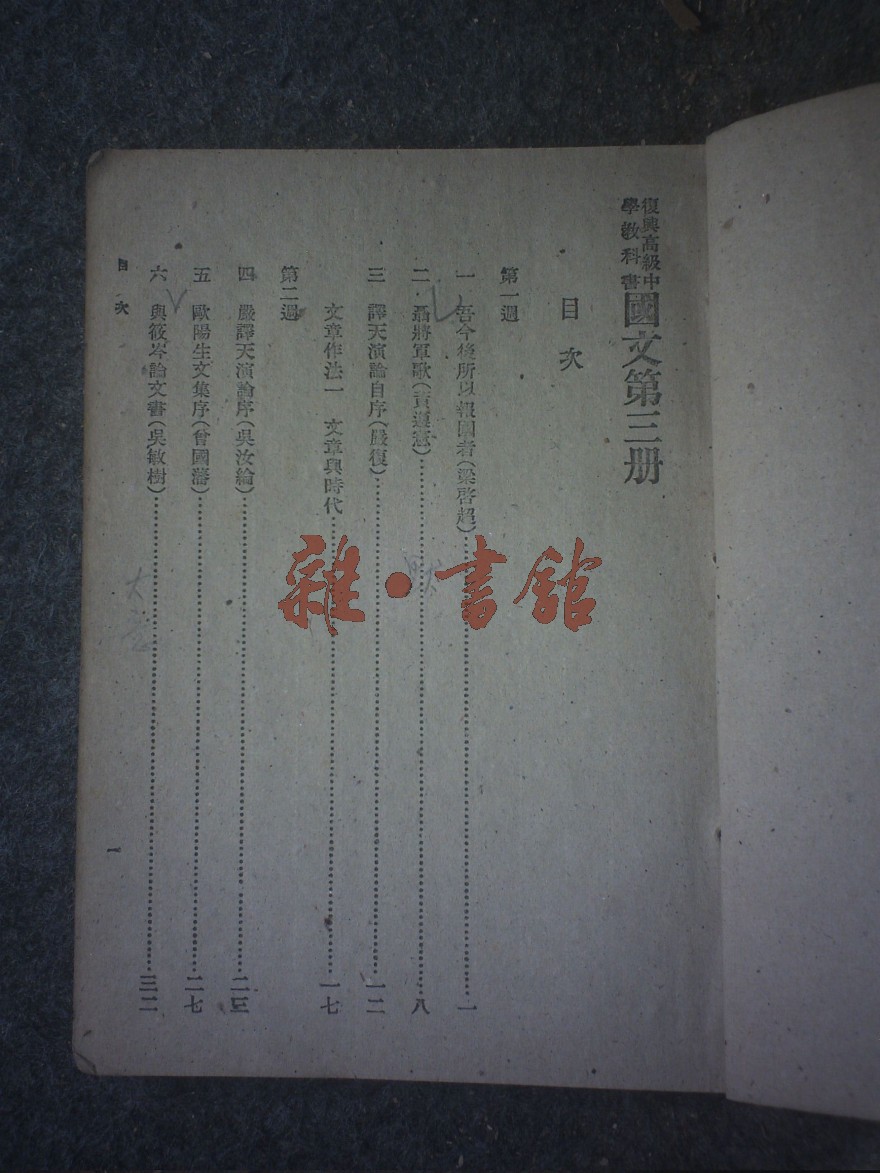 復興高級中
學教科書
國文第三册
目次
第一週
一 吾今後所以報國者(梁啓超)⋯⋯一
二 聶將軍歌(黃遵憲)⋯⋯八
三 譯天演論自序(嚴復)⋯⋯一二
文章作法一 文章與時代⋯⋯一七
第二週
四 嚴譯天演論序(吳汝綸)⋯⋯二三
五 歐陽生文集序(曾國藩)⋯⋯二七
六 與筱岑論文書(吳敏樹)⋯⋯三二
目次
一
雜•書館